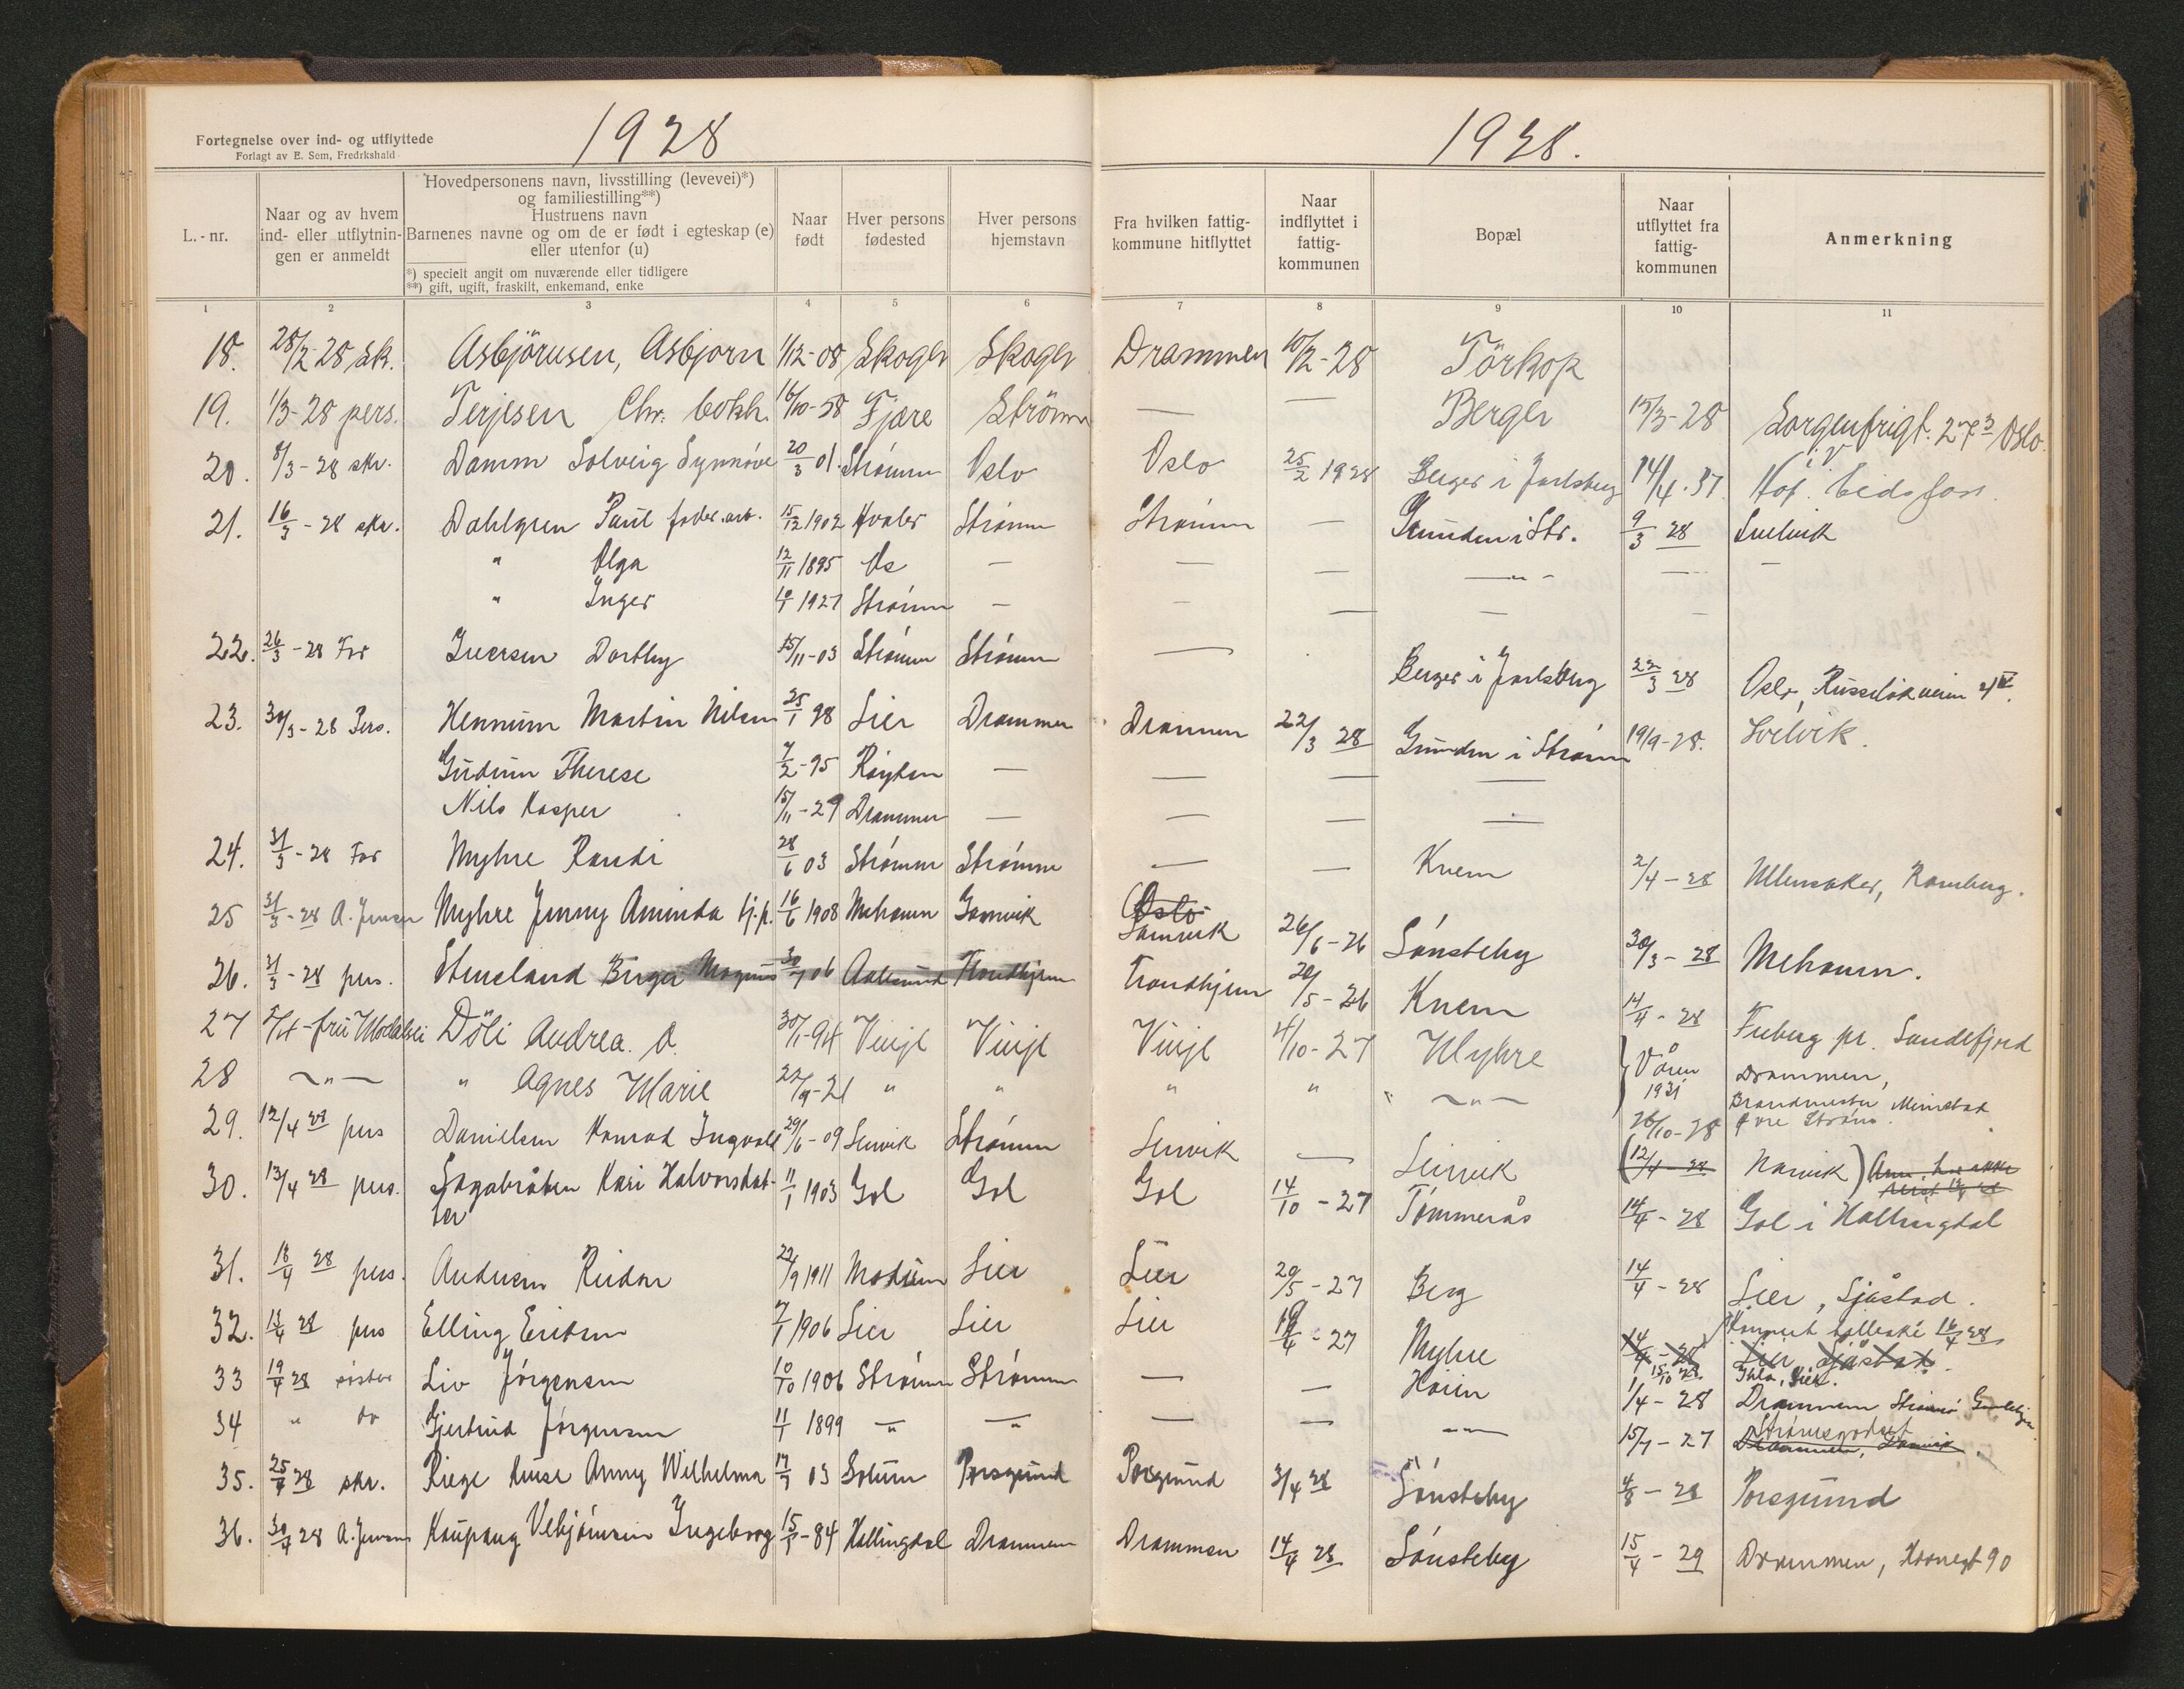 1928
1928.
Fortegnelse over ind- og utflyttede
Forlagt av E. Sem, Fredrkshald
L.-nr.
Naar og av hvem
ind- eller utflytnin-
gen er anmeldt
Hovedpersonens navn, livsstilling (levevei)*)
og familiestilling**)
Hustruens navn
Barnenes navne og om de er født i egteskap (e)
eller utenfor (u)
*) specielt angit om nuværende eller tidligere
**) gift, ugift, fraskilt, enkemand, enke
Naar
født
Hver persons
fødested
Hver persons
hjemstavn
Fra hvilken fattig-
kommune hitflyttet
Naar
indflyttet i
fattig-
kommunen
Bopæl
Naar
utflyttet fra
fattig-
kommunen
Anmerkning
1 2 3 4 5 6 7 8 9 10 11
18. 28/2-28 sk. Asbjörnsen, Asbjorn 1/12-08 Skoger Skoger Drammen 10/2-28 Törkop
19. 1/3-28 pers. Terjesen Chr. bokh. 16/10-58 Fjære Strömm — — Berger 15/3-28 Sorgenfrigt. 27 3 Oslo.
20. 8/3-28 skr. Damm Solveig Synnöve 20/3 01. Strömm Oslo Oslo 25/2 1928 Berger i Jarlsberg 14/4.37 Hof. i V Eidsfoss.
21. 16/3-28 skr. Dahlgren Paul fabr. arb. 15/12 1902 Hvaler Strømm Strømm — Grunden i Str. 9/3 28 Svelvik
" Olga 12/11 1895 As — — — —"— — —
" Inger 10/1 1927 Strømm — — — — —
22. 26/3-28 For Iversen Dorthy 15/11-03 Strømm Strømm — Berger i Jarlsberg 22/3 28 Oslo, Russeløkveien
23. 30/3-28 Pers. Hennum Martin Nilsen 25/1 98 Lier Drammen Drammen 22/3 28 Grunden i Strømm 19/9-28. Svelvik.
Gudrun Therese 7/2-95 Røyken — — — —
Nils Kasper 15/11-29 Drammen — — — —
24. 31/3-28 For Myhre Randi 28/6 03 Strømm Strømm — — Knem 2/4-28 Ullensaker, Ramberg.
25 31/3-28 A. Jensen Myhre Jenny Aminda tj.p. 16/6 1908 Mehamn Gamvik Oslo Gamvik 26/6-26 Sønsteby 30/3-28 Mehamn.
26. 31/3-28 pers. Stensland Birger Magnus 30/7 06 Aalesund Trondhjem Trondhjem 20/5-26 Knem 14/4-28 Freberg pr. Sandefjord
27 5/4-fru Döli Andrea. O. 30/1-94 Vinje Vinje Vinje 4/10-27 Myhre } Våren 1931 Drammen,
28 ~"— " Agnes Marie 22/9-21 " " " " ~"— Brandmester Mimstad
29. 12/4 28 pers Danielsen Konrad Ingvald 29/6-09 Leirvik Strømm Leirvik — Leirvik 26/10-28 Øvre Strøms.
(12/4-28 Narvik)
30. 13/4 28 pers. Sagabråten Kari Halvorsdat-
ter 11/1 1903 Gol Gol Gol 14/10-27 Tømmerås 14/4-28 Gol i Hallingdal
31. 13/4 28 pers. Andersen Reidar 22/9 1911 Modum Lier Lier 20/5-27 Berg 14/4-28 Lier, Sjåstad.
32. 13/4 28 pers Elling Eriksen 7/1 1906 Lier Lier Lier 19/4-27 Myhre 14/4-28 Lier Sjåstad.
16/4 28
33 19/4 28 søster Liv Jørgensen 10/10 1906 Strømm Strømm — — Høien 1/4-28 Drammen Strømsø
34 " do Gjertrud Jørgensen 11/1 1899 —"— —"— — — —"— 15/7-27 Strømsgodset Drammen,
35. 25/4 28 skr. Riege Kruse Anny Wilhelma 17/7 03 Solum Porsgrund Porsgrund 3/4 28 Sønsteby 4/8-28 Porsgrund
36. 30/4 28 A. Jensen Kaupang Vebjørnsen Ingeborg 15/5-84 Hallingdal Drammen Drammen 14/4 28 Sønsteby 15/4-29 Drammen, Havnegt 90